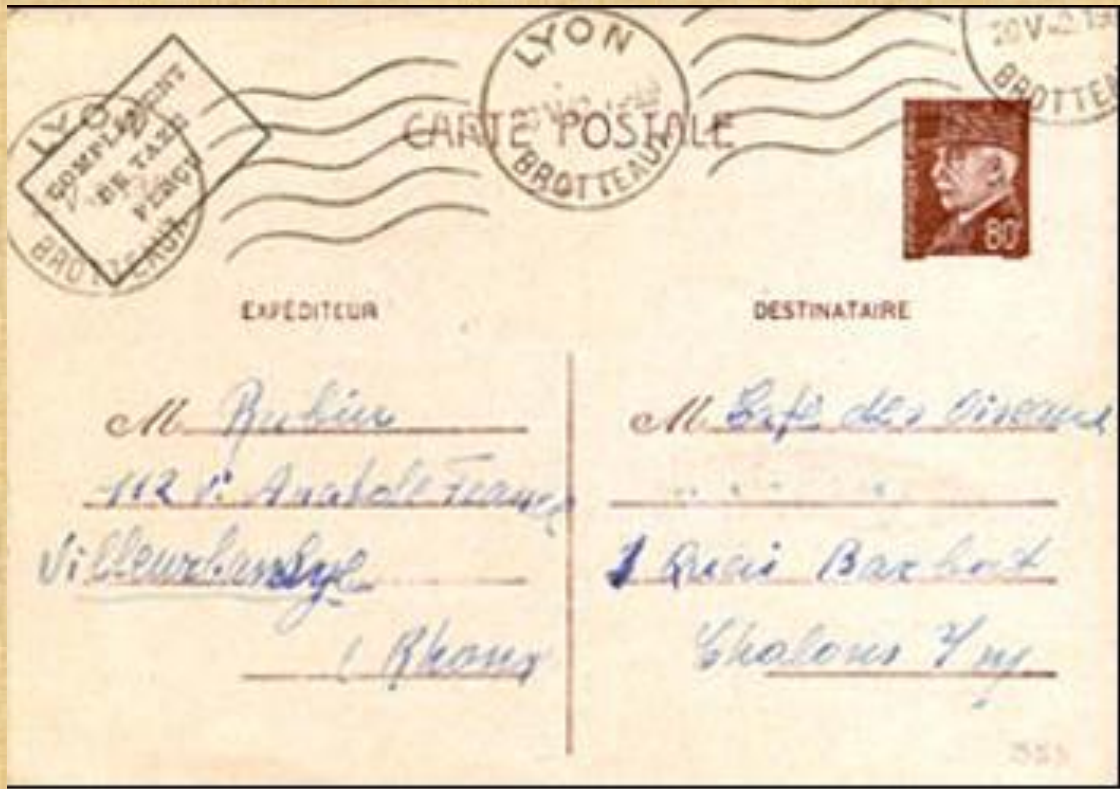 LYON
BROTTEAUX
COMPLEMENT
DE TAXE
PERÇU
LYON
BROTTEAUX
20 V
BROTTEAUX
CARTE POSTALE
80
EXPÉDITEUR
M. Rubin
112 r. Anatole France
Villeurbanne
(Rhone
DESTINATAIRE
M. Café des Oiseaux
1 Quai
Chalons